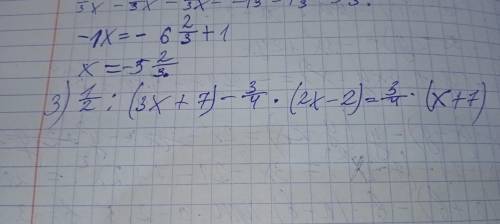 -1x = - 6 2/3 + 1
x = -5 2/3
3) 1/2 : (3x + 7) - 3/4 · (2x - 2) = 3/4 · (x + 7)